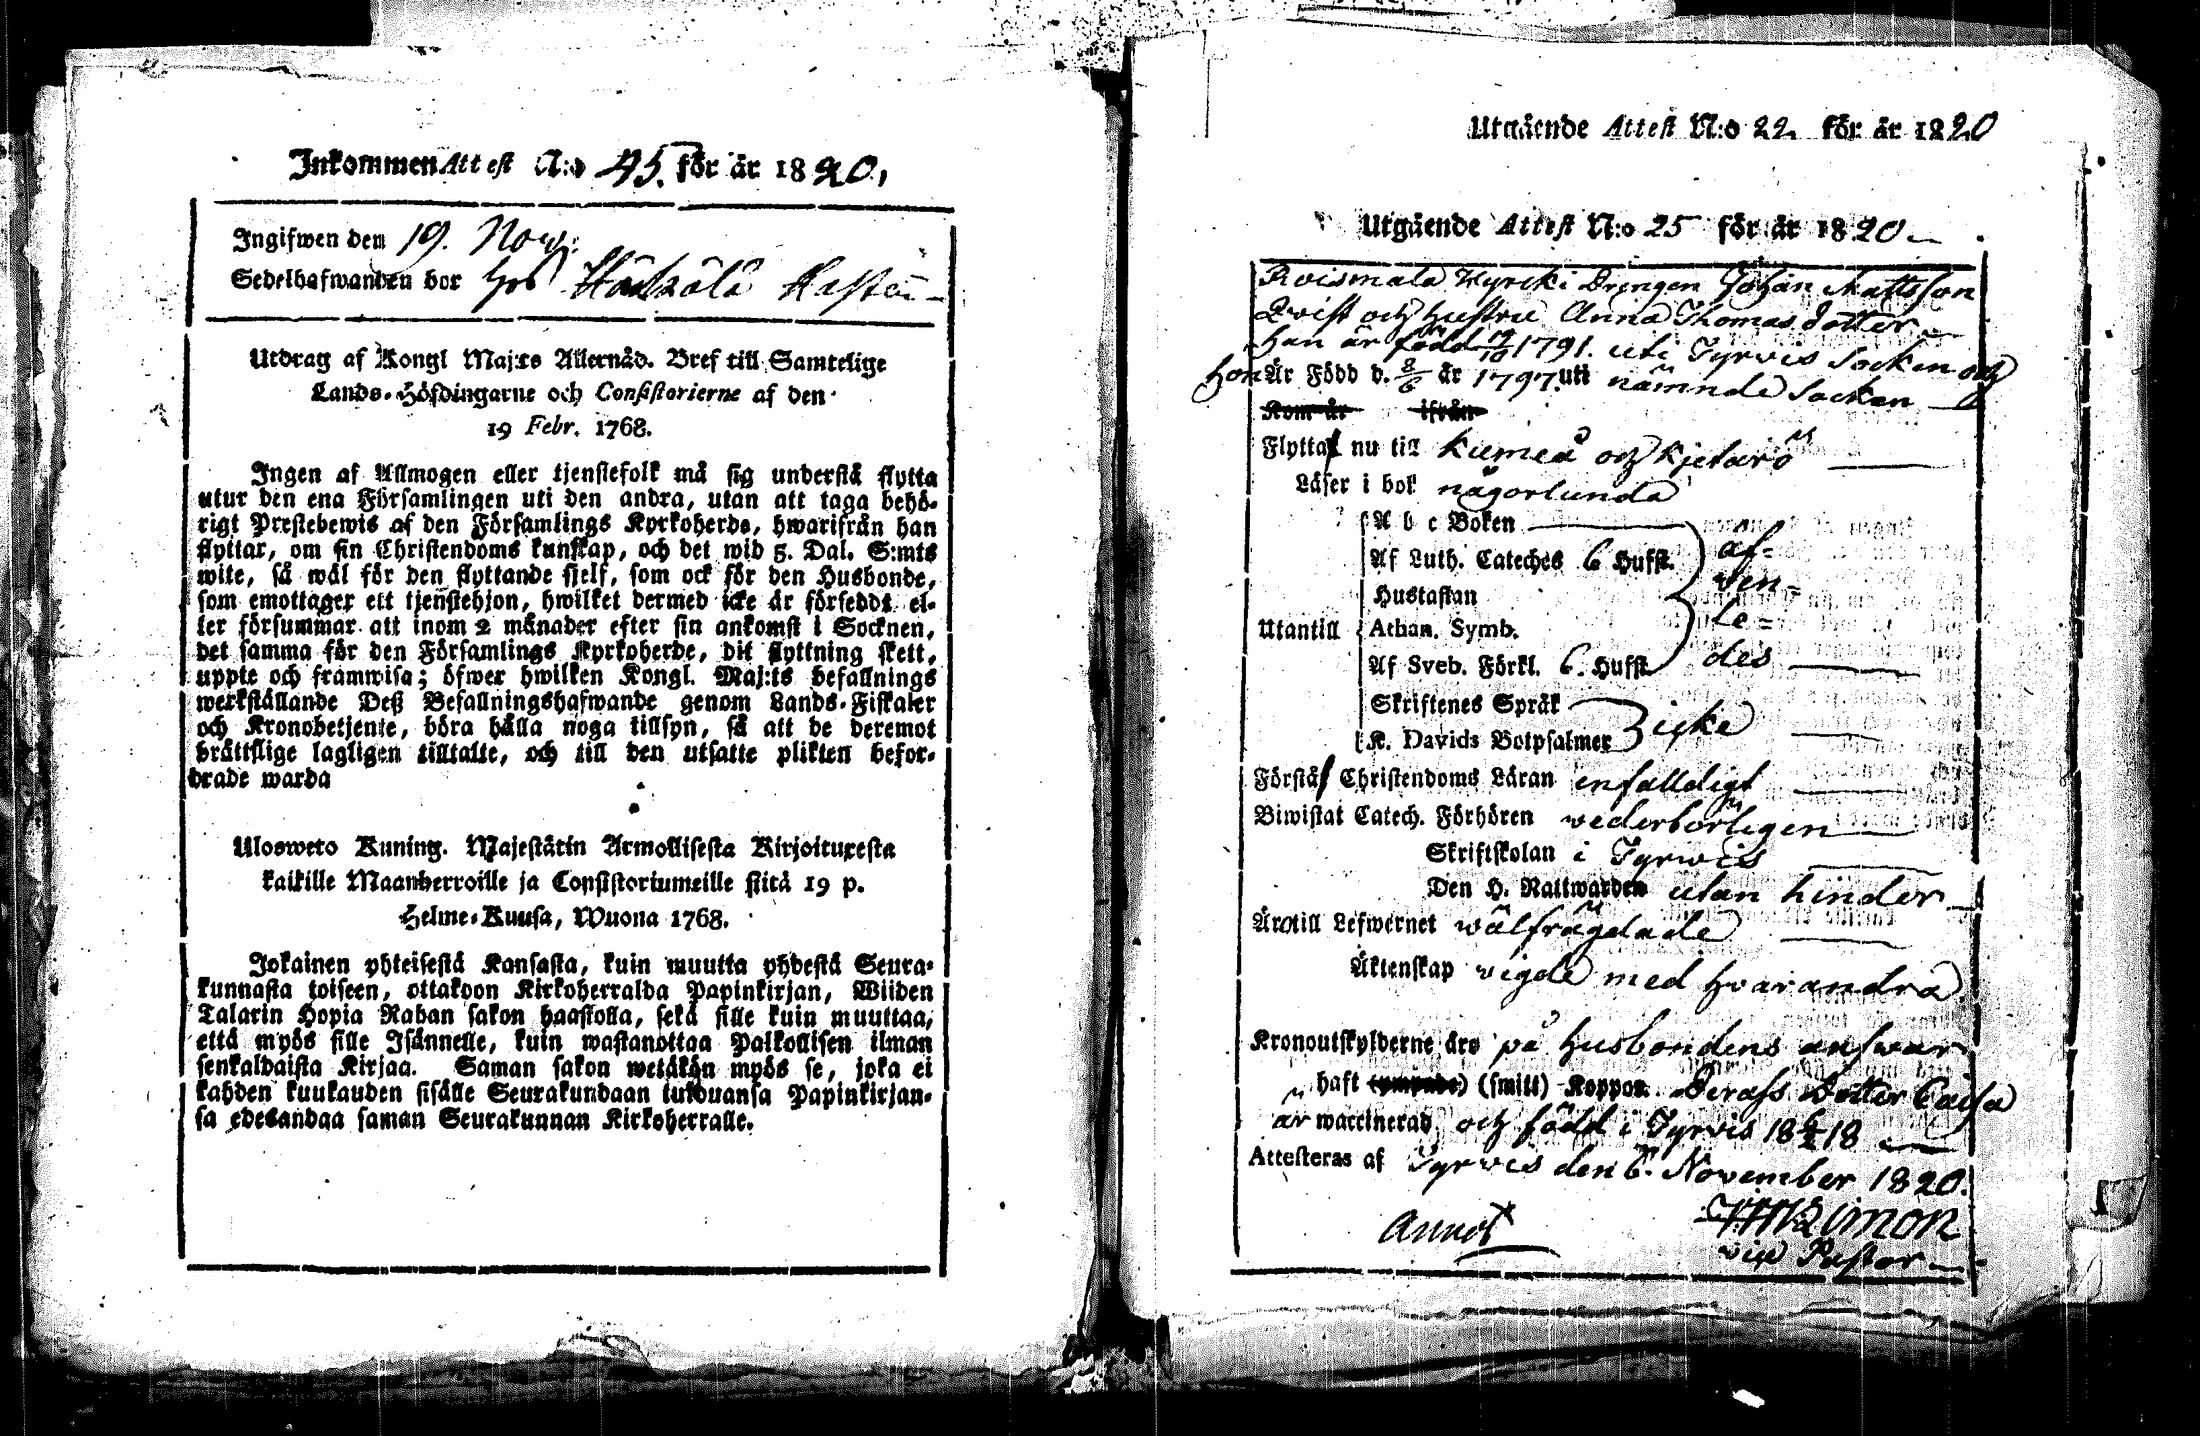 Inkommen Attest N:o 45. för år 1820,
Ingifwen den 19. Nov:
Sedelhafwanden bor hos
Utdrag af Kongl Maj:ts Allernåd. Bref till Samtelige
Lands-Höfdingarne och Consistorierne af den
19 Febr. 1768.
Ingen af Allmogen eller tjenstefolk må sig understå flytta
utur den ena Församlingen uti den andra, utan att taga behö-
rigt Prestebewis af den Församlings Kyrkoherde, hwarifrån han
flyttar, om sin Christendoms kunskap, och det wid 5. Dal. S:mts
wite, så wäl för den flyttande sjelf, som ock för den Husbonde,
som emottager ett tjenstehjon, hwilket dermed icke är förseddt el-
ler försummar att inom 2 månader efter sin ankomst i Socknen,
det samma för den Församlings Kyrkoherde, dit flyttning skett,
uppte och framwisa; öfwer hwilken Kongl. Maj:ts befallnings
werkställande Deß Befallningshafwande genom Lands-Fiskaler
och Kronobetjente, böra hålla noga tillsyn, så att de deremot
bråttslige lagligen tilltalte, och till den utsatte plikten befor-
drade warda
Ulosweto Kuning. Majestätin Armollisesta Kirjoituxesta
kaikille Maanherroille ja Consistoriumeille siitä 19 p.
Helme-Kuusa, Wuona 1768.
Jokainen yhteisestä Kansasta, kuin muutta yhdestä Seura-
kunnasta toiseen, ottakoon Kirkoherralda Papinkirjan, Wiiden
Talarin Hopia Rahan sakon haastolla, sekä sille kuin muuttaa,
että myös sille Isännelle, kuin wastanottaa Palkollisen ilman
senkaldaista Kirjaa. Saman sakon wetäkön myös se, joka ei
kahden kuukauden sisälle Seurakundaan tulduansa Papinkirjan-
sa edesandaa saman Seurakunnan Kirkoherralle.
Utgående Attest N:o 22. för år 1820
Utgående Attest N:o 25 för år 1820
Roismala Kyrcki Drengen Johan Mattsson
Qvist och hustru Anna Thomasdotter
Han är född 19/10 1791. uti Tyrvis Socken och
hon Är Född d. 8/6 år 1797. uti nämnde Socken
Kom år ifrån
Flytta nu till Kumeå och Kjetarö
Läser i bok någorlunda
A b c Boken
Af Luth. Cateches 6 Hufst.
Hustaflan
Utantill Athan. Symb.
Af Sveb. Förkl. 6. Hufst.
af-
ven-
le-
des
Skriftenes Språk
K. Davids Botpsalmer icke
Förstå Christendoms Läran enfalldigt
Biwistat Catech. Förhören vederbörligen
Skriftskolan i Tyrwis
Den H. Nattwarden utan hinder
Äro till Lefwernet wälfrägdade
Äktenskap vigde med hvarandra
Kronoutskylderne äro på husbondens answar
haft (ympade) (smitt) Koppor. Derass Dotter Caisa
är waccinerad och född i Tyrvis 18 6/2 18
Attesteras af Tyrvis den 6. November 1820.
Annot
vice Pastor